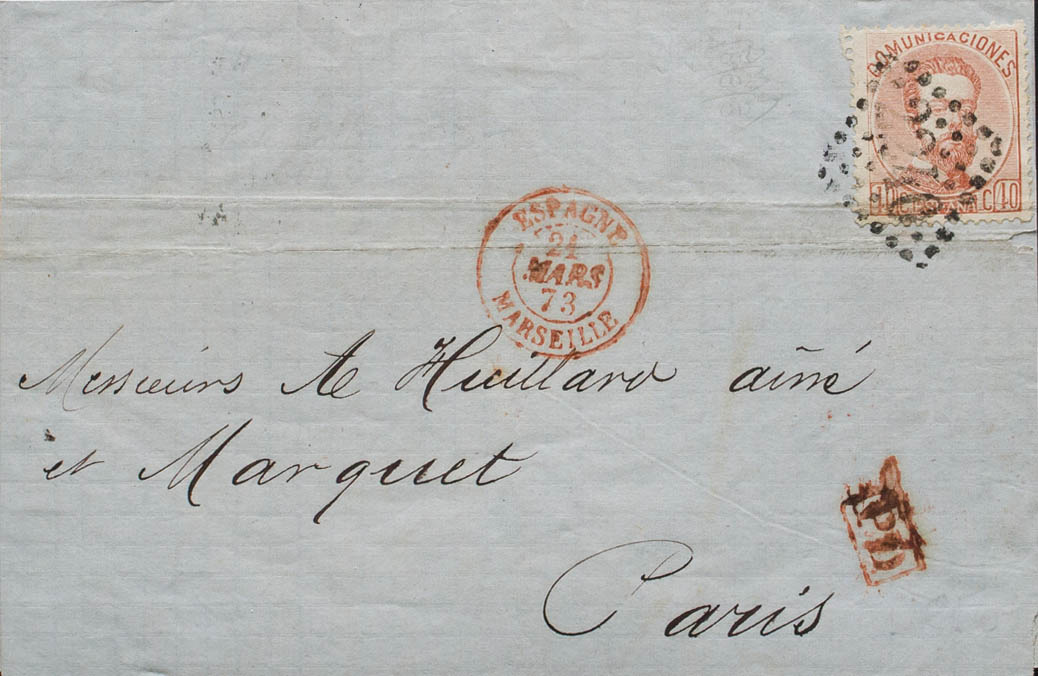 COMUNICACIONES
40 C. ESPAÑA C. 40
ESPAGNE
21
MARS
73
MARSEILLE
Messieurs Ae Huillard aîné
et Marquet
PD
Paris